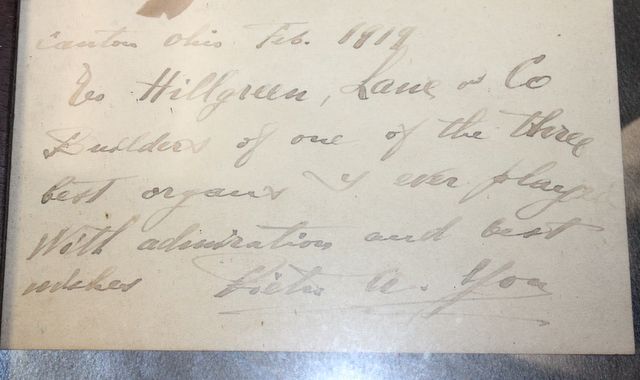 Canton Ohio Feb. 1919
To Hillgreen, Lane & Co
Builders of one of the three
best organs I ever played
With admiration and best
wishes Pietro A. Yon